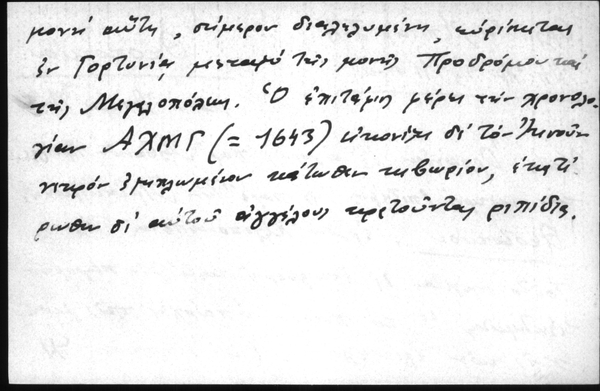 μονὴ αὕτη, σήμερον διαλελυμένη, εὑρίσκεται
ἐν Γορτυνίᾳ μεταξὺ τῆς μονῆς Προδρόμου καὶ
τῆς Μεγαλοπόλεως. Ὁ ἐπιτάφιος φέρει τὴν χρονολο-
γίαν ΑΧΜΓ (= 1643) εἰκονίζει δὲ τὸν Ἰησοῦν
νεκρὸν ἐξηπλωμένον κάτωθεν κιβωρίου, ἑκατέ
ρωθεν δὲ αὐτοῦ ἀγγέλους κρατοῦντας ριπίδια.